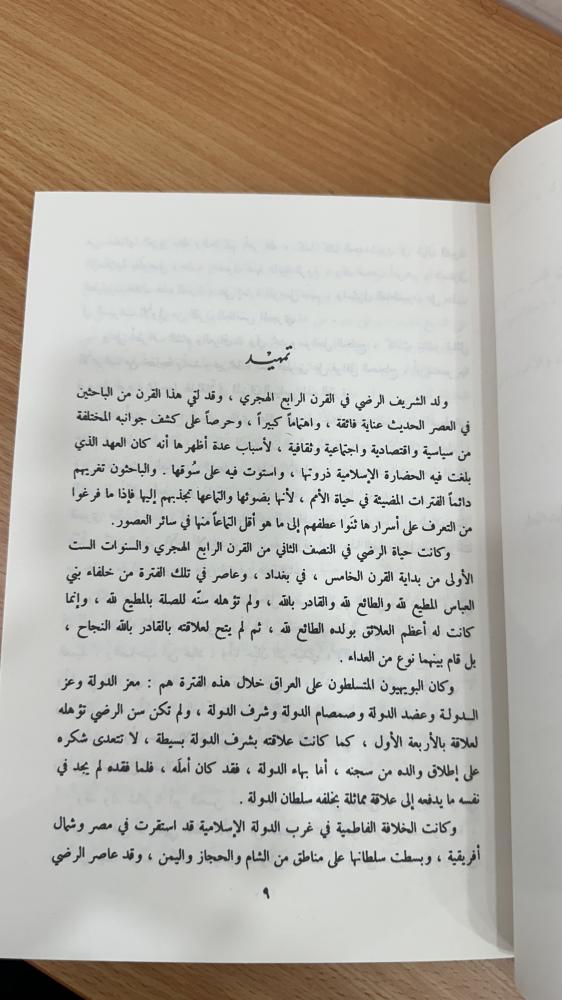 تمهيد
ولد الشريف الرضي في القرن الرابع الهجري ، وقد لقي هذا القرن من الباحثين
في العصر الحديث عناية فائقة ، واهتماماً كبيراً ، وحرصاً على كشف جوانبه المختلفة
من سياسية واقتصادية واجتماعية وثقافية ، لأسباب عدة أظهرها أنه كان العهد الذي
بلغت فيه الحضارة الإسلامية ذروتها ، واستوت فيه على سُوقها . والباحثون تغريهم
دائماً الفترات المضيئة في حياة الأمم ، لأنها بضوئها والتماعها تجذبهم إليها فإذا ما فرغوا
من التعرف على أسرارها ثنَوا عطفهم إلى ما هو أقل التماعاً منها في سائر العصور .
وكانت حياة الرضي في النصف الثاني من القرن الرابع الهجري والسنوات الست
الأولى من بداية القرن الخامس ، في بغداد ، وعاصر في تلك الفترة من خلفاء بني
العباس المطيع لله والطائع لله والقادر بالله ، ولم تؤهله سنّه للصلة بالمطيع لله ، وإنما
كانت له أعظم العلائق بولده الطائع لله ، ثم لم يتح لعلاقته بالقادر بالله النجاح ،
بل قام بينهما نوع من العداء .
وكان البويهيون المتسلطون على العراق خلال هذه الفترة هم : معز الدولة وعز
الدولة وعضد الدولة وصمصام الدولة وشرف الدولة ، ولم تكن سن الرضي تؤهله
لعلاقة بالأربعة الأول ، كما كانت علاقته بشرف الدولة بسيطة ، لا تتعدى شكره
على إطلاق والده من سجنه ، أما بهاء الدولة ، فقد كان أملَه ، فلما فقده لم يجد في
نفسه ما يدفعه إلى علاقة مماثلة بخلفه سلطان الدولة .
وكانت الخلافة الفاطمية في غرب الدولة الإسلامية قد استقرت في مصر وشمال
أفريقية ، وبسطت سلطانها على مناطق من الشام والحجاز واليمن ، وقد عاصر الرضي
٩